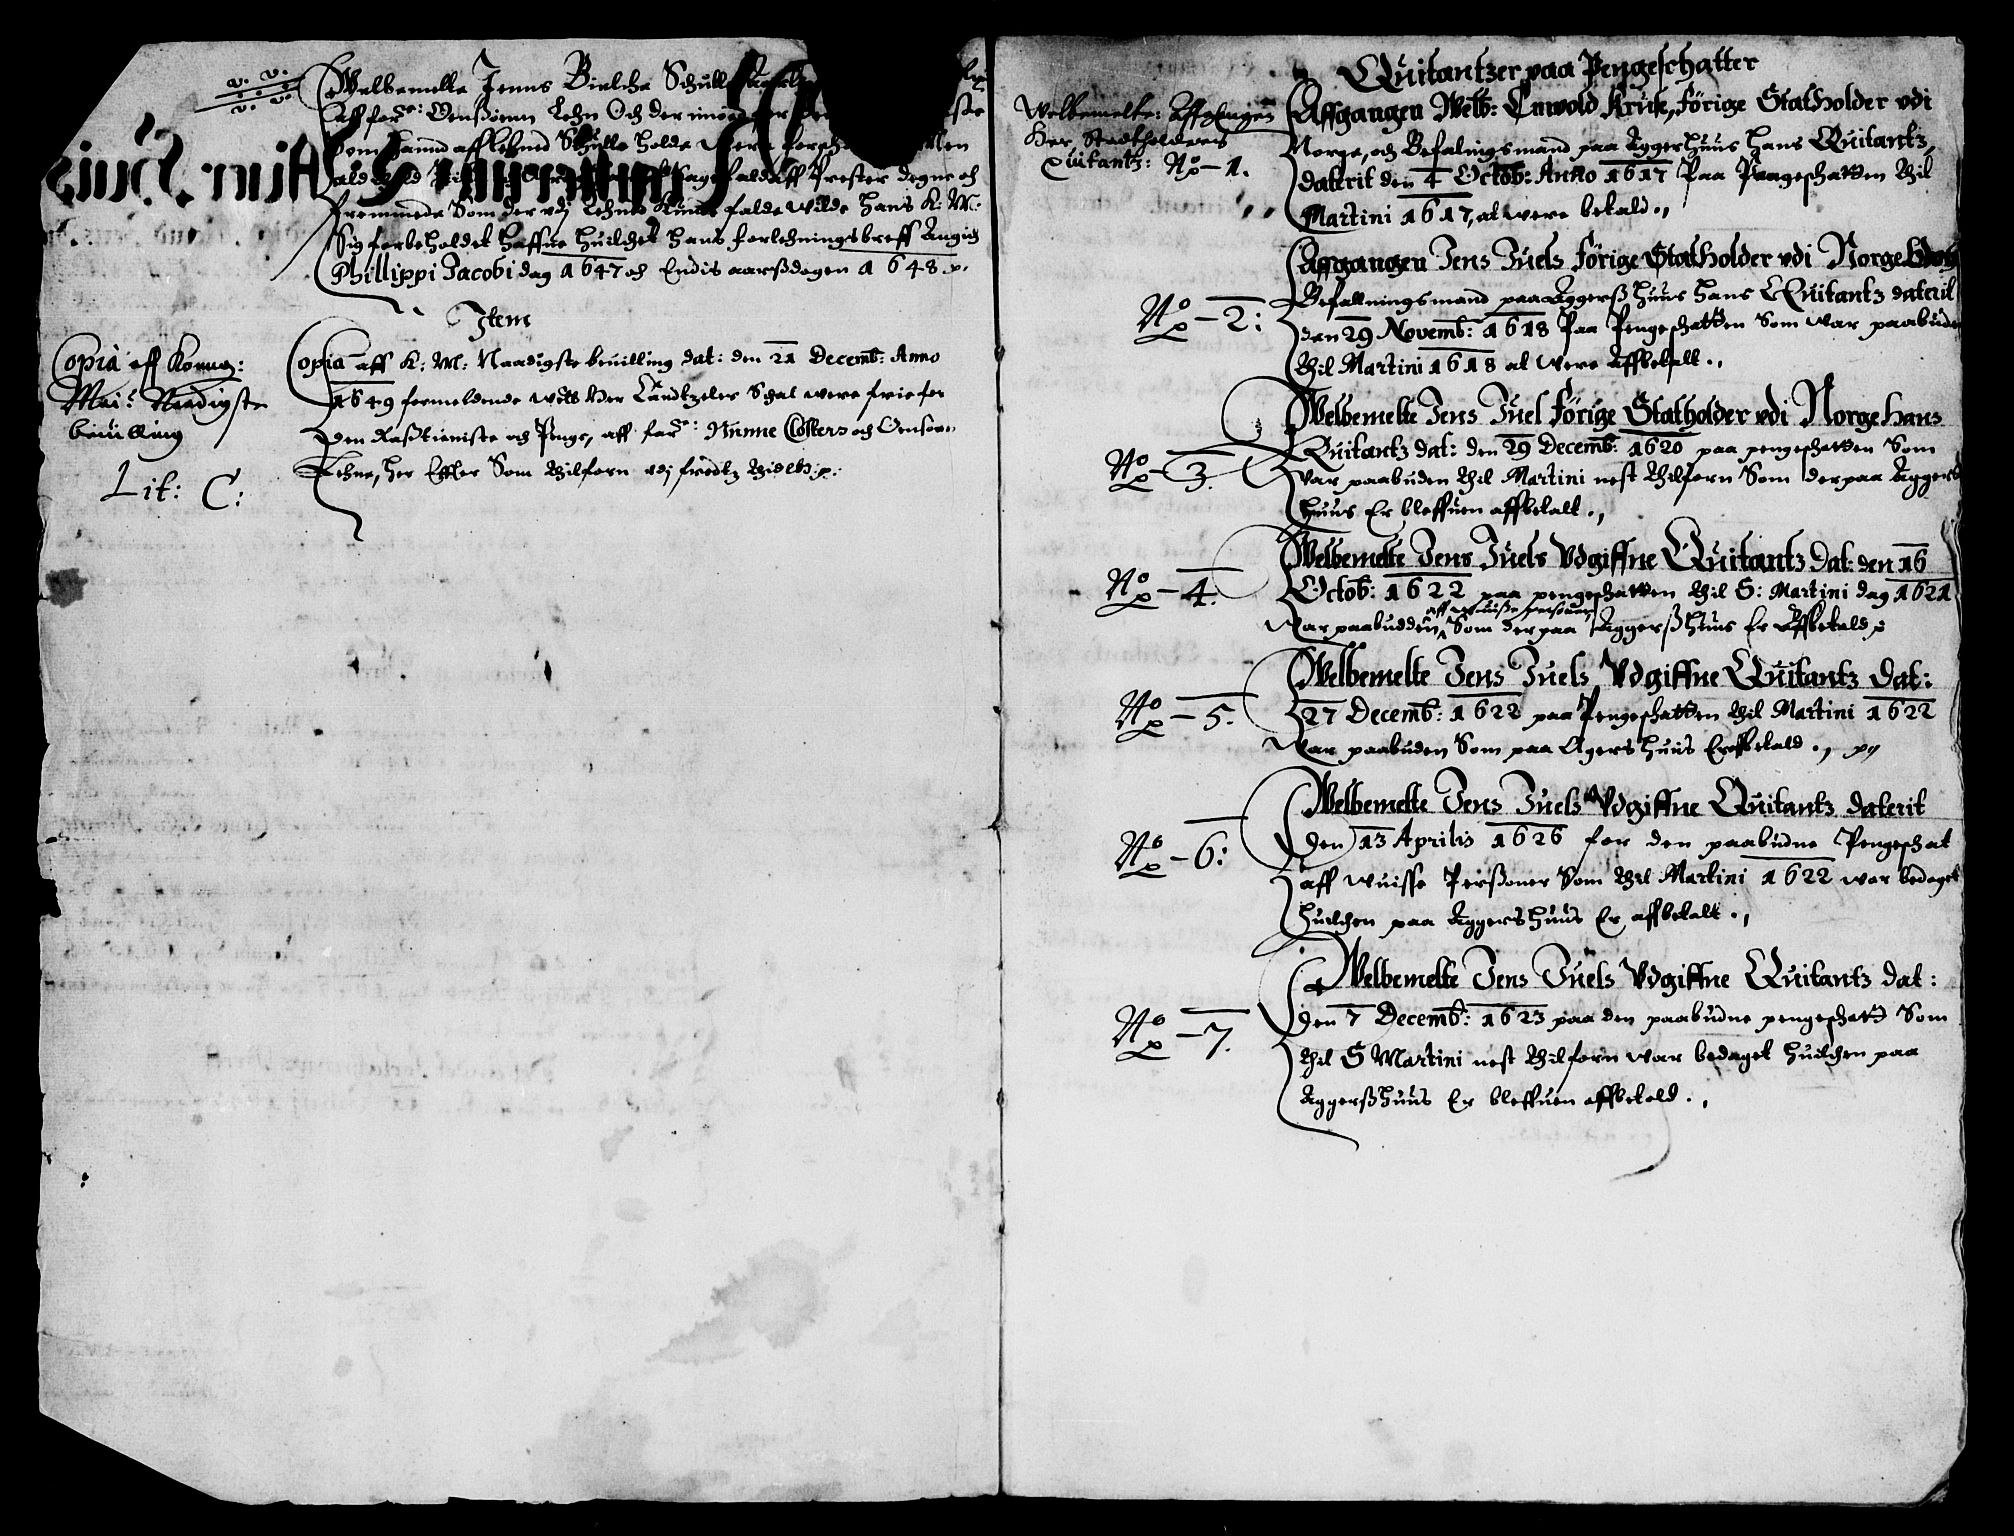 Welbemelte Jenns Bielche Schulle
Aff for: Onsøenn Lehn Och der imod
Som hannd aff lehned Skulle holde Were
fald aff Prester degne och
fremmede Som der vdj Lehned Kunde falde wilde Hans K: M:
Sig forbeholdet haffue huilchet Hans forlehningsbreff Angich
Phillippi Jacobi dag 1647 och Endis aarßdagen 1648
Item
Copia aff Konng:
Mai: Naadigste
beuilling
Lit: C:
Copia aff K: M: Naadigste beuilling dat: den 21 Decemb: Anno
1649 formeldende Welb Her Cantzeler Schal were frie for
Den Roßtieniste och Penge, aff for: Nunne Closters och Onsøe
Lehne, her Effter Som tilforn vdj fredtz tidth
Quitantzer paa Pengeschatter
Welbemelte: Affgangen
Her Stadtholders
Quitantz: No - 1.
Affgangen Welb: Enwold Kruse, förige Statholder vdi
Norge, och Befalingsmand paa Aggerhuus Hans Quitantz,
daterit den 4 Octob: Anno 1617 Paa Pengeschatten til
Martini 1617, at were betald.,
No - 2:
Affgangen Jens Juels förige Statholder vdi Norge och
Befallningsmand paa Aggerß Huus Hans Quitantz daterit
den 29 Novemb: 1618 Paa Pengeschatten Som war paabuden
til Martini 1618 at Were Affbetalt.,
No - 3.
Welbemelte Jens Juel förige Statholder vdi Norge hans
Quitantz dat: den 29 Decemb: 1620 paa pengeschatten Som
War paabuden til Martini nest tilforn Som der paa Aggers
Huus Er bleffuen affbetalt.,
No - 4.
Welbemelte Jens Juels Vdgiffne Quitantz dat: den 16
Octob: 1622 paa pengeschatten til S: Martini dag 1621
aff wuiße personer
War paabudden, Som der paa Aggerß Huus Er Affbetald
No - 5.
Welbemelte Jens Juels Vdgiffne Quitantz dat:
27 Decemb: 1622 paa Pengeschatten til Martini 1622
War paabuden Som paa Agers Huus Er affbetald.,
No - 6:
Welbemelte Jens Juels Vdgiffne Quitantz daterit
den 13 Aprilis 1626 for den paabudne Pengeschat
aff wuisse Perßoner Som til Martini 1622 war bedaget
Huilchen paa Aggers Huus Er affbetalt.,
No - 7.
Welbemelte Jens Juels Vdgiffne Quitantz dat:
den 7 Decemb: 1623 paa den paabudne pengeschatt Som
til S Martini nest tilforn war bedaget Huilchen paa
Aggerßhuus Er bleffuen affbetald.,